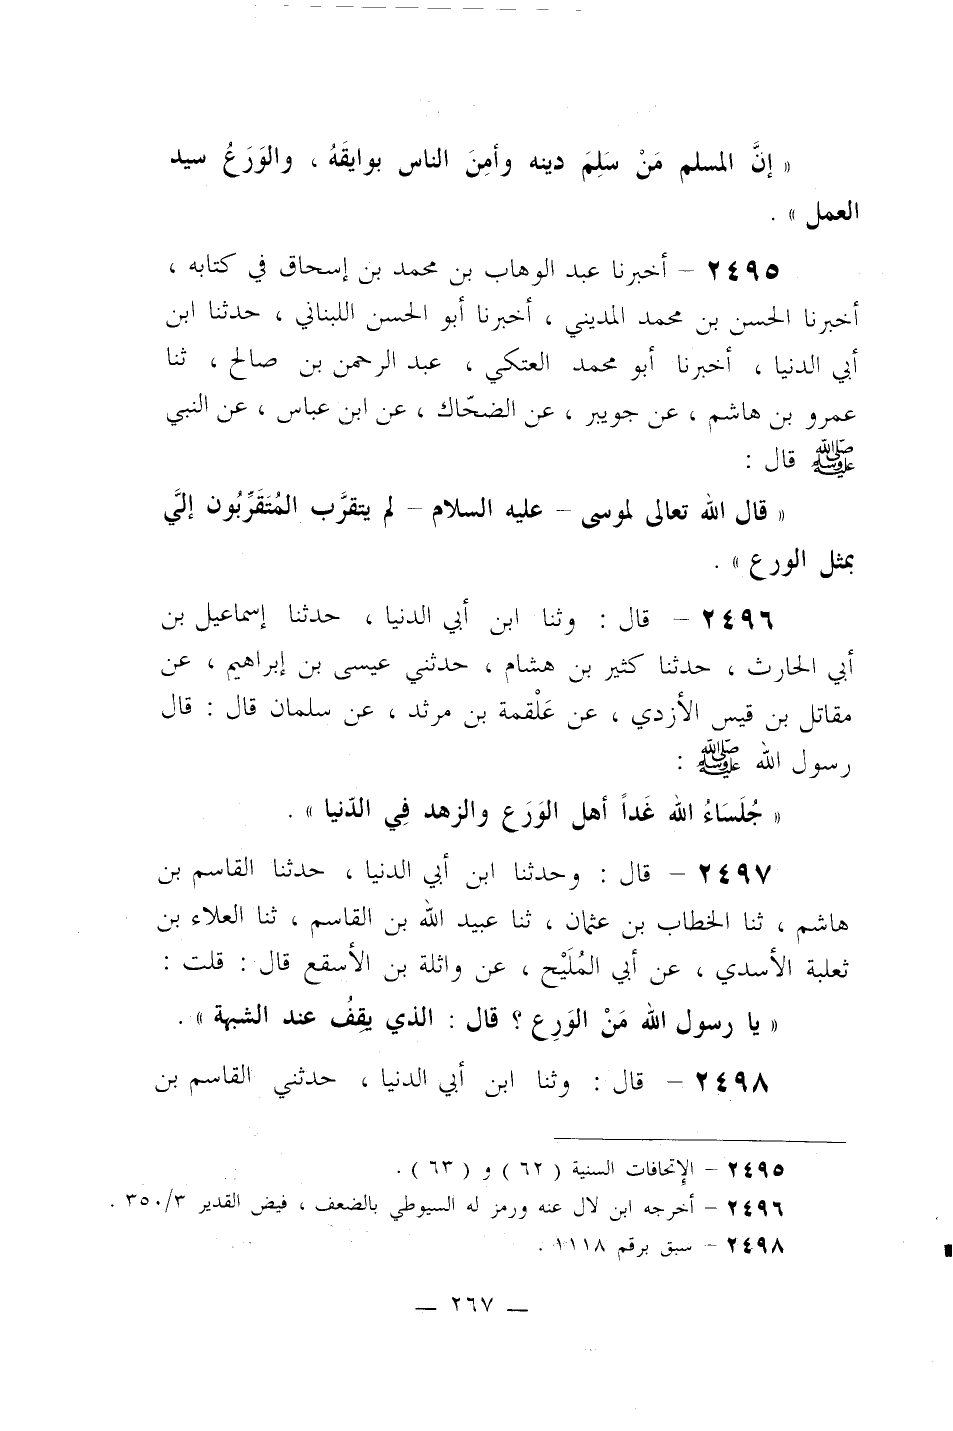 « إنَّ المسلم مَنْ سَلِمَ دينه وأمِنَ الناس بوايقَهُ ، والوَرَعُ سيد
العمل » .
٢٤٩٥ – أخبرنا عبد الوهاب بن محمد بن إسحاق في كتابه ،
أخبرنا الحسن بن محمد المديني ، أخبرنا أبو الحسن اللبناني ، حدثنا ابن
أبي الدنيا ، أخبرنا أبو محمد العتكي ، عبد الرحمن بن صالح ، ثنا
عمرو بن هاشم ، عن جويبر ، عن الضحّاك ، عن ابن عباس ، عن النبي
ﷺ قال :
« قال الله تعالى لموسى – عليه السلام – لم يتقرَّب المُتَقَرِّبُون إليَّ
بمثل الورع » .
٢٤٩٦ – قال : وثنا ابن أبي الدنيا ، حدثنا إسماعيل بن
أبي الحارث ، حدثنا كثير بن هشام ، حدثني عيسى بن إبراهيم ، عن
مقاتل بن قيس الأزدي ، عن عَلْقمة بن مرثد ، عن سلمان قال : قال
رسول الله ﷺ :
« جُلَسَاءُ الله غَداً أهل الوَرَع والزهد فِي الدّنيا » .
٢٤٩٧ – قال : وحدثنا ابن أبي الدنيا ، حدثنا القاسم بن
هاشم ، ثنا الخطاب بن عثمان ، ثنا عبيد الله بن القاسم ، ثنا العلاء بن
ثعلبة الأسدي ، عن أبي المُلَيْح ، عن واثلة بن الأسقع قال : قلت :
« يا رسول الله مَنْ الوَرِع ؟ قال : الذي يقِفُ عند الشبهة » .
٢٤٩٨ – قال : وثنا ابن أبي الدنيا ، حدثني القاسم بن
٢٤٩٥ – الإتحافات السنية ( ٦٢ ) و ( ٦٣ ) .
٢٤٩٦ – أخرجه ابن لال عنه ورمز له السيوطي بالضعف ، فيض القدير ٣٥٠/٣ .
٢٤٩٨ – سبق برقم ١١١٨ .
— ٢٦٧ —